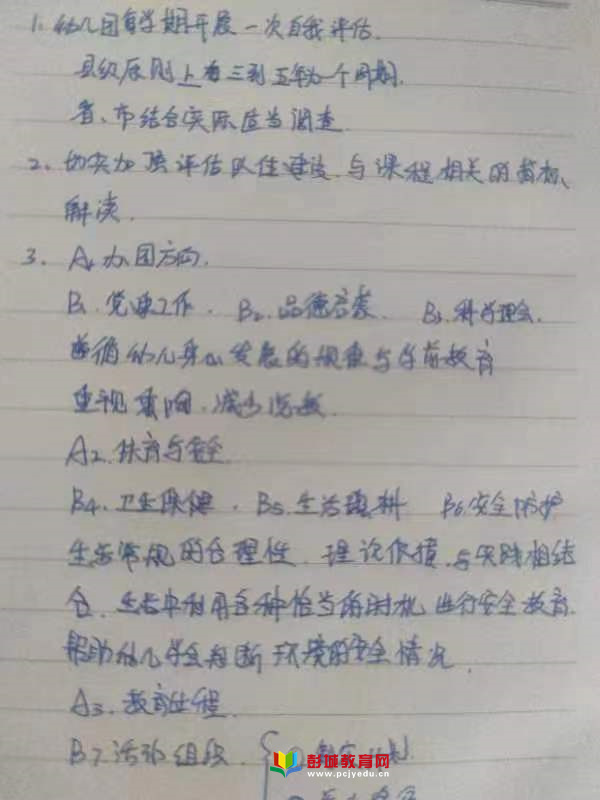 1. 幼儿园每学期开展一次自我评估.
县级原则上每三到五年为一个周期.
省、市结合实际适当调查
2. 切实加强评估队伍建设、与课程相关的指标、
解读.
3. A1 办园方向.
B1. 党建工作. B2. 品德启蒙. B3. 科学理念.
遵循幼儿身心发展的规律与学前教育
重视 减少说教.
A2. 保育与安全
B4. 卫生保健. B5. 生活照料 B6. 安全防护
生活常规的合理性. 理论依据.与实践相结
合. 生活中利用各种恰当的时机 进行安全教育.
帮助幼儿学会判断 环境的安全情况.
A3. 教育过程.
B7 活动组织. ① 计划
彭城教育网
www.pcjyedu.cn